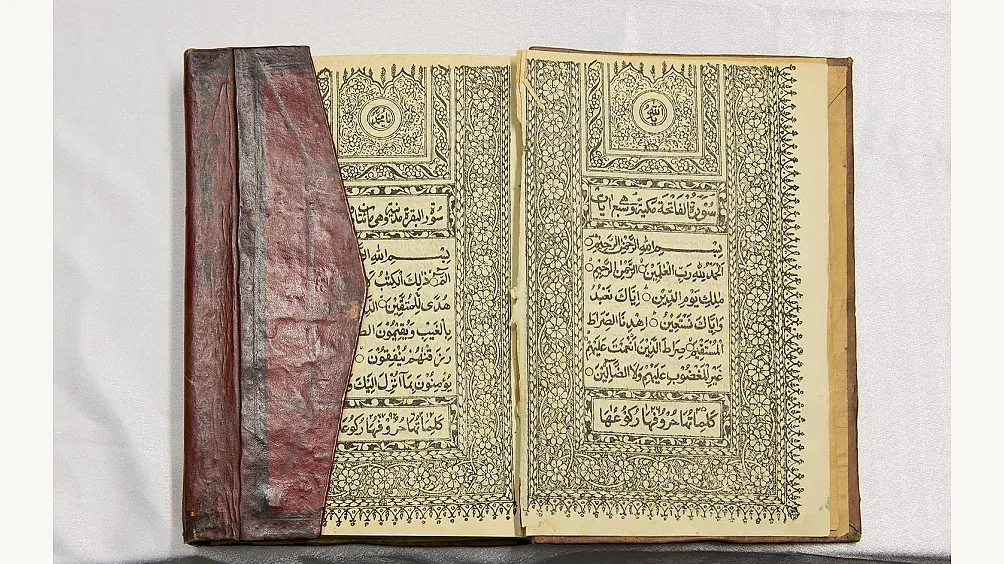 يا الله
سُوْرَةُ الْفَاتِحَة مَكِّيَّة وَهِيَ سَبْعُ اٰيَات
بِسْمِ اللهِ الرَّحْمٰنِ الرَّحِيْمِ
اَلْحَمْدُ لِلهِ رَبِّ الْعٰلَمِيْنَ الرَّحْمٰنِ الرَّحِيْمِ
مٰلِكِ يَوْمِ الدِّيْنِ اِيَّاكَ نَعْبُدُ
وَاِيَّاكَ نَسْتَعِيْنُ اِهْدِنَا الصِّرَاطَ
الْمُسْتَقِيْمَ صِرَاطَ الَّذِيْنَ اَنْعَمْتَ عَلَيْهِمْ
غَيْرِ الْمَغْضُوْبِ عَلَيْهِمْ وَلَا الضَّآلِّيْنَ
كلماتها حروفها ركوعها
يا محمد
سُوْرَةُ البقرة مدنية وهي
بِسْمِ اللهِ
الٓمّٓ ذٰلِكَ الْكِتٰبُ
هُدًى لِّلْمُتَّقِيْنَ
بِالْغَيْبِ وَيُقِيْمُوْنَ
رَزَقْنٰهُمْ يُنْفِقُوْنَ
يُؤْمِنُوْنَ بِمَآ اُنْزِلَ اِلَيْكَ
كلماتها حروفها